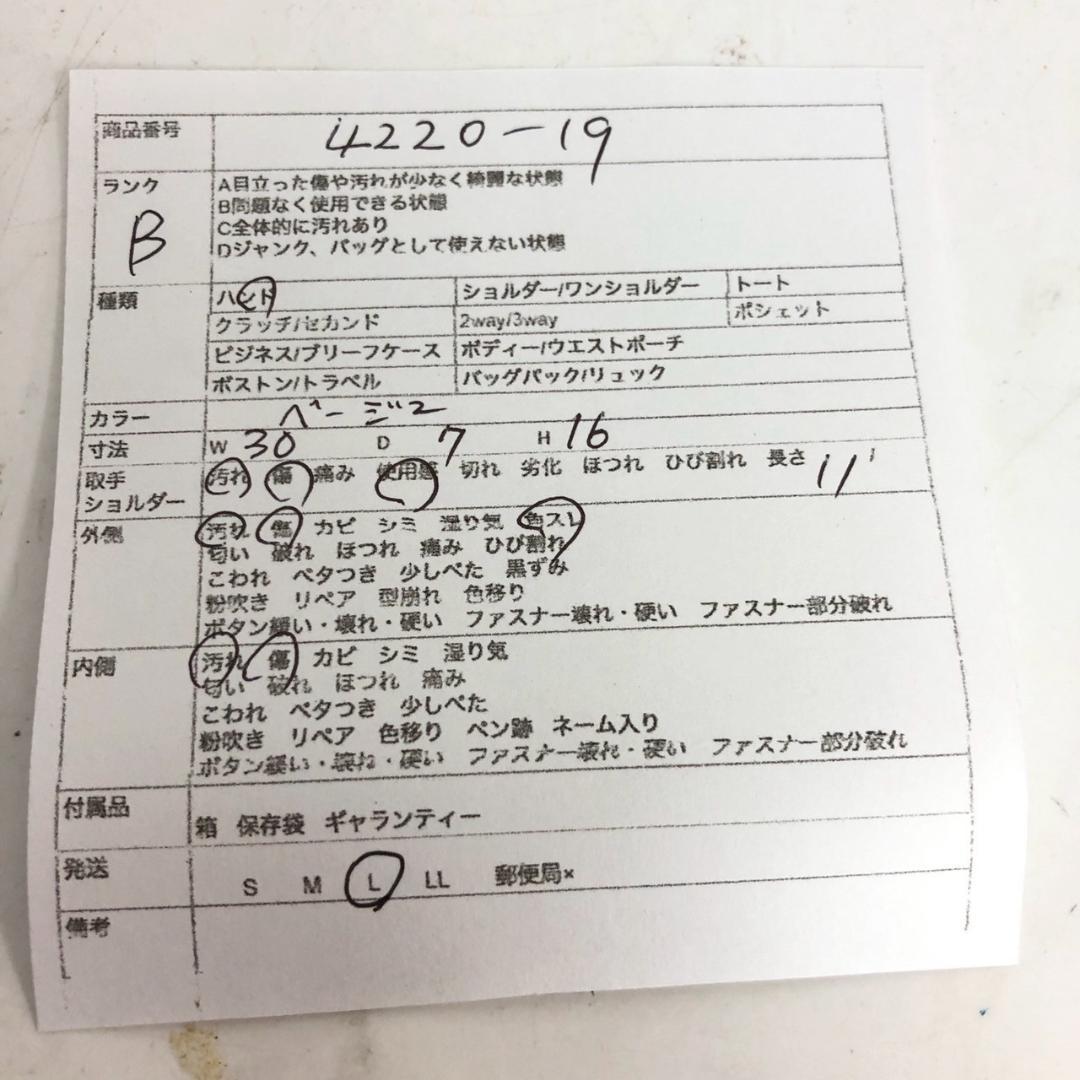 商品番号 4220-19
ランク
B
A目立った傷や汚れが少なく綺麗な状態
B問題なく使用できる状態
C全体的に汚れあり
Dジャンク、バッグとして使えない状態
種類 ハンド ショルダー/ワンショルダー トート
クラッチ/セカンド 2way/3way ポシェット
ビジネス/ブリーフケース ボディー/ウエストポーチ
ボストン/トラベル バックパック/リュック
カラー ベージュ
寸法 W 30 D 7 H 16
取手 汚れ 傷 痛み 使用感 切れ 劣化 ほつれ ひび割れ 長さ 11
ショルダー
外側 汚れ 傷 カビ シミ 湿り気 色スレ
匂い 破れ ほつれ 痛み ひび割れ
こわれ ベタつき 少しべた 黒ずみ
粉吹き リペア 型崩れ 色移り
ボタン緩い・壊れ・硬い ファスナー壊れ・硬い ファスナー部分破れ
内側 汚れ 傷 カビ シミ 湿り気
匂い 破れ ほつれ 痛み
こわれ ベタつき 少しべた
粉吹き リペア 色移り ペン跡 ネーム入り
ボタン緩い・壊れ・硬い ファスナー壊れ・硬い ファスナー部分破れ
付属品 箱 保存袋 ギャランティー
発送 S M L LL 郵便局×
備考